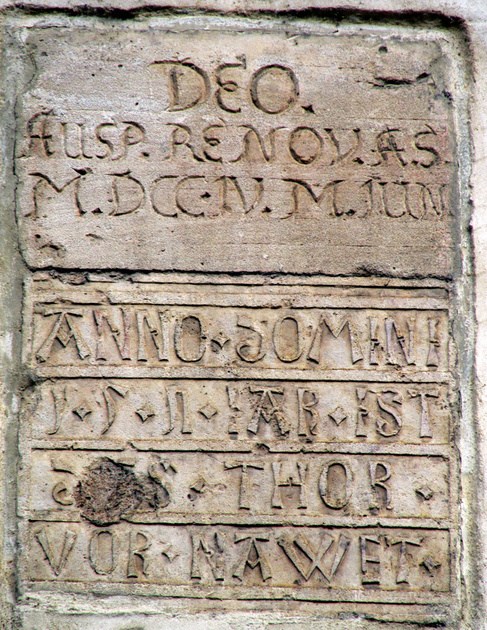 DEO.
AUSP. RENOV. A. S.
M.DCC.IV. M. JUN
ANNO ⋄ DOMINI
IAR ⋄ IST
THOR ⋄
VOR ⋄ NAWET ⋄